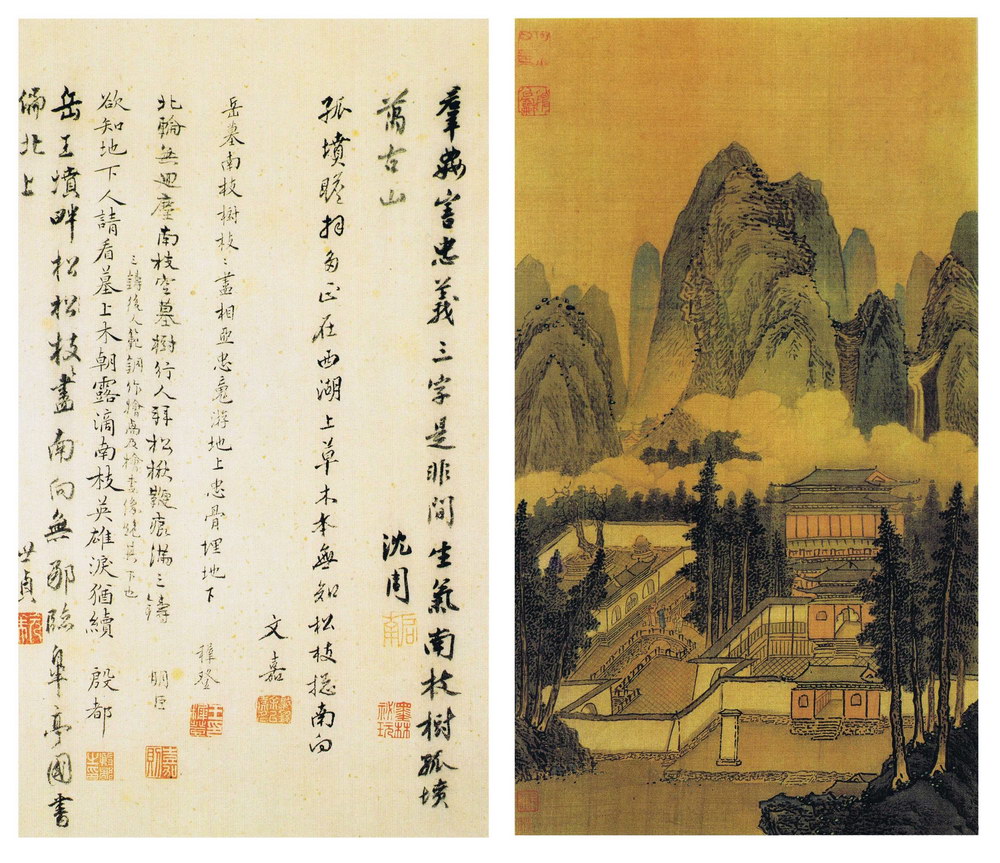 羣姦害忠義三字是非間生氣南枝樹孤墳
萬古山 沈周
孤墳瞻拜多正在西湖上草木本無知松枝摠南向
文嘉
岳墓南枝樹枝〻盡相亞忠魂游地上忠骨埋地下
穉登
北轅無迴塵南枝空墓樹行人拜松楸 痕滿三鑄
明臣
三鑄後人範銅作檜卨及檜妻像 其下也
欲知地下人請看墓上木朝露滴南枝英雄淚猶續 殷都
岳王墳畔松松枝盡南向無那臨皐亭國書
偏北上 世貞
墨林秘玩